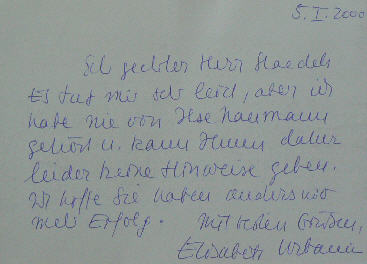 5. I. 2000
Seh geehter Herr Haedel
Es tut mir sehr leid, aber ich
habe nie von Ilse Naumann
gehört u. kann Ihnen daher
leider keine Hinweise geben.
Ich hoffe Sie haben anderswo
mehr Erfolg. Mit besten Grüßen,
Elisabeth Urbancic